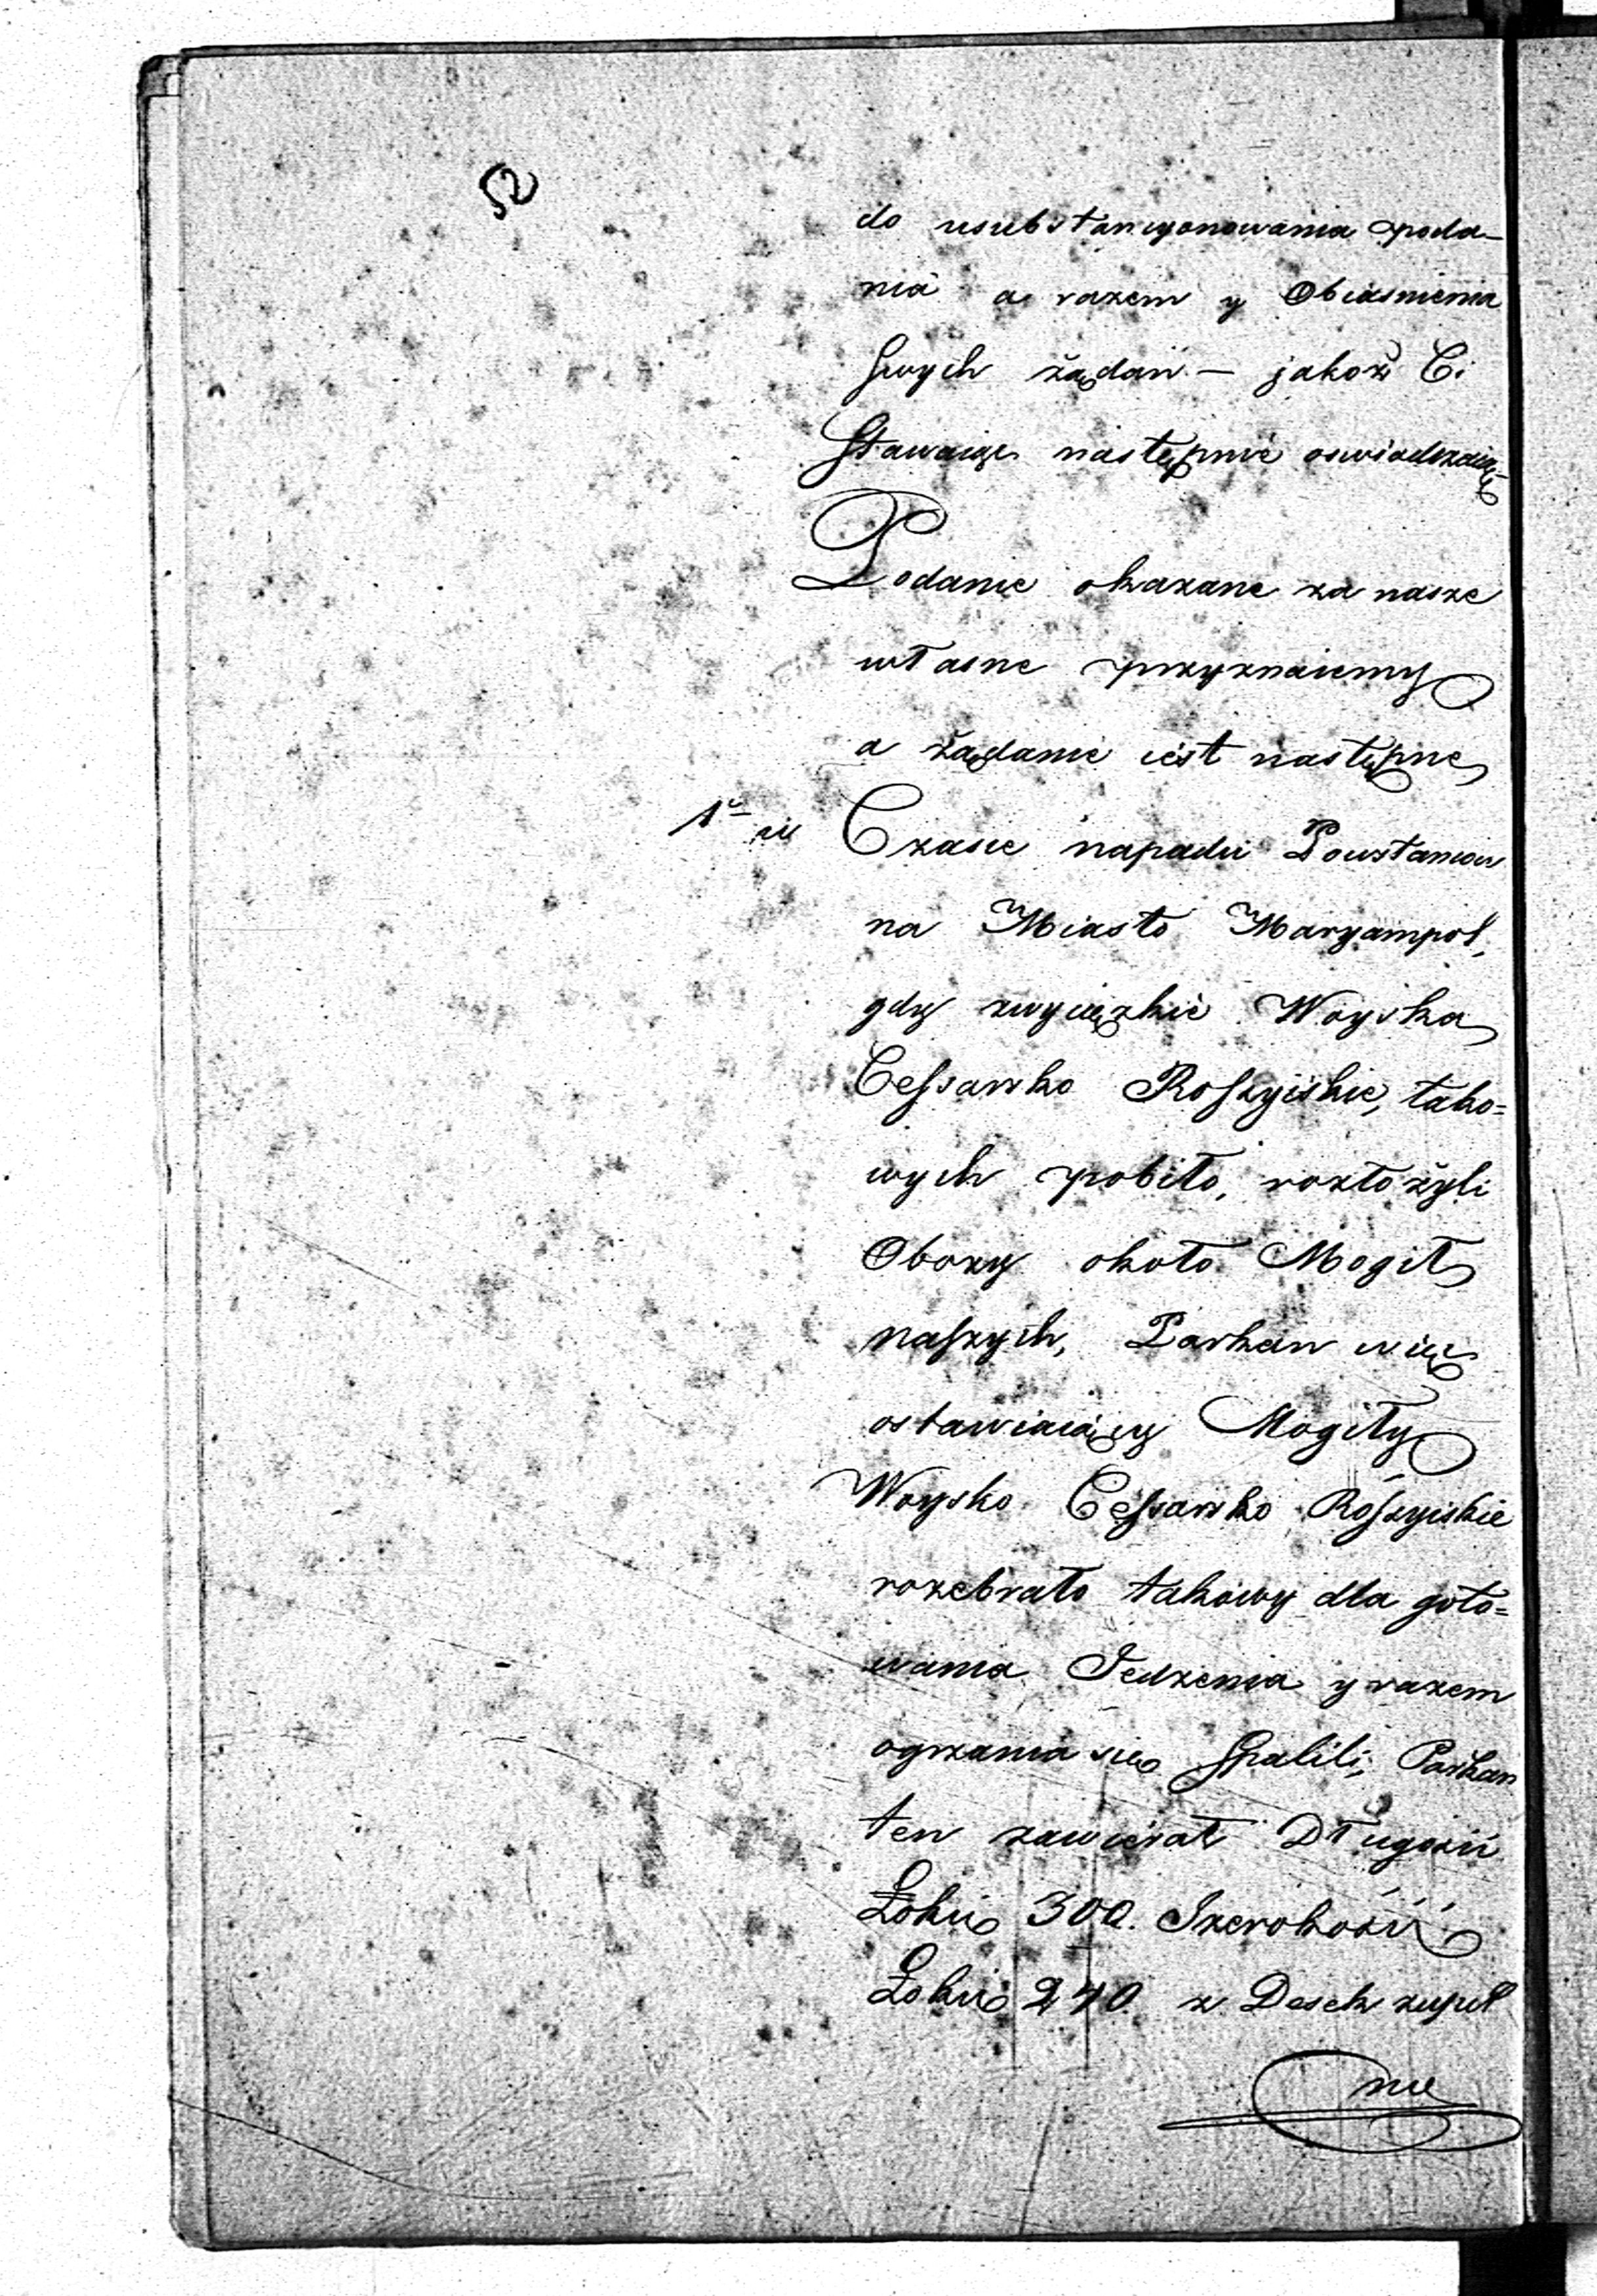 52
do usubstancyonowania poda-
nia a razem y Obiasnienia
swych żądań — jakoż Ci
stawaiąc następnie oswiadczaią
Podanie okazane za nasze
własne przyznaiemy
a żądanie iest następne
1° w Czasie napadu Powstancow
na Miasto Maryampol,
gdy zwycięzkie Woyska
Cessarsko Roszyiskie, tako=
wych pobiło, rozłożyli
Obozy około Mogił
naszych, Parkan więc
ostawiaiący Mogiły
Woysko Cessarsko Roszyiskie
rozebrało takowy dla goto=
wania Jedzenia y razem
ogrzania się spalili, Parkan
ten zawierał Długości
Łokci 300. Szerokości
Łokci 240. z Desek zupeł
nie